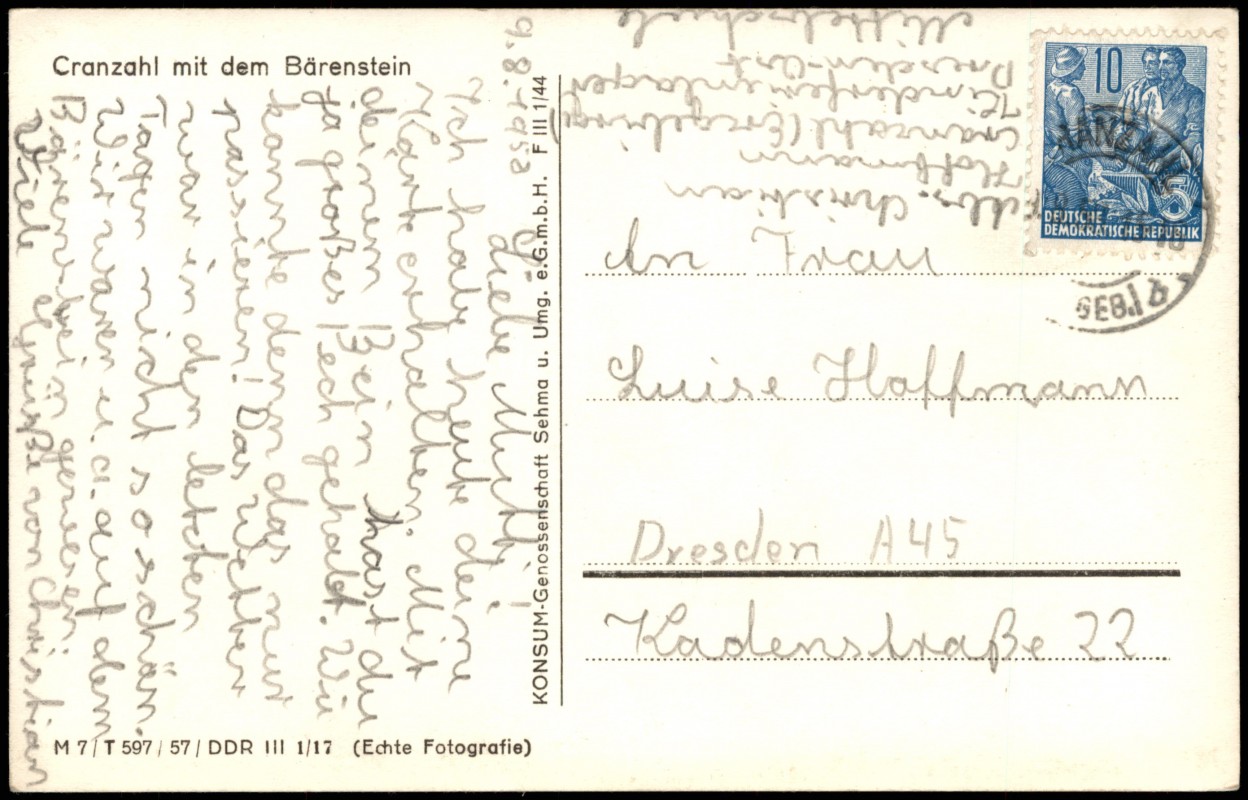 Cranzahl mit dem Bärenstein
9.8.1958
Liebe Mutti!
Ich habe heute deine
Karte erhalten. Mit
deinem Bein hast du
ja großes Pech gehabt. Wie
konnte denn das nur
passieren! Das Wetter
war in den letzten
Tagen nicht so schön.
Wir waren u. a. auf dem
Bärenstein gewesen.
Viele Grüße von Christian
M 7/T 597/57/DDR III 1/17 (Echte Fotografie)
KONSUM-Genossenschaft Sehma u. Umg. e.G.m.b.H. F III 1/44
Abs. Christian
Hoffmann
Cranzahl (Erzgebirge)
Kinderferienlager
Dresden-Ost
Mittelschule
10
5
DEUTSCHE
DEMOKRATISCHE REPUBLIK
RANZAHL
GEB.) b
An Frau
Luise Hoffmann
Dresden A45
Kadenstraße 22